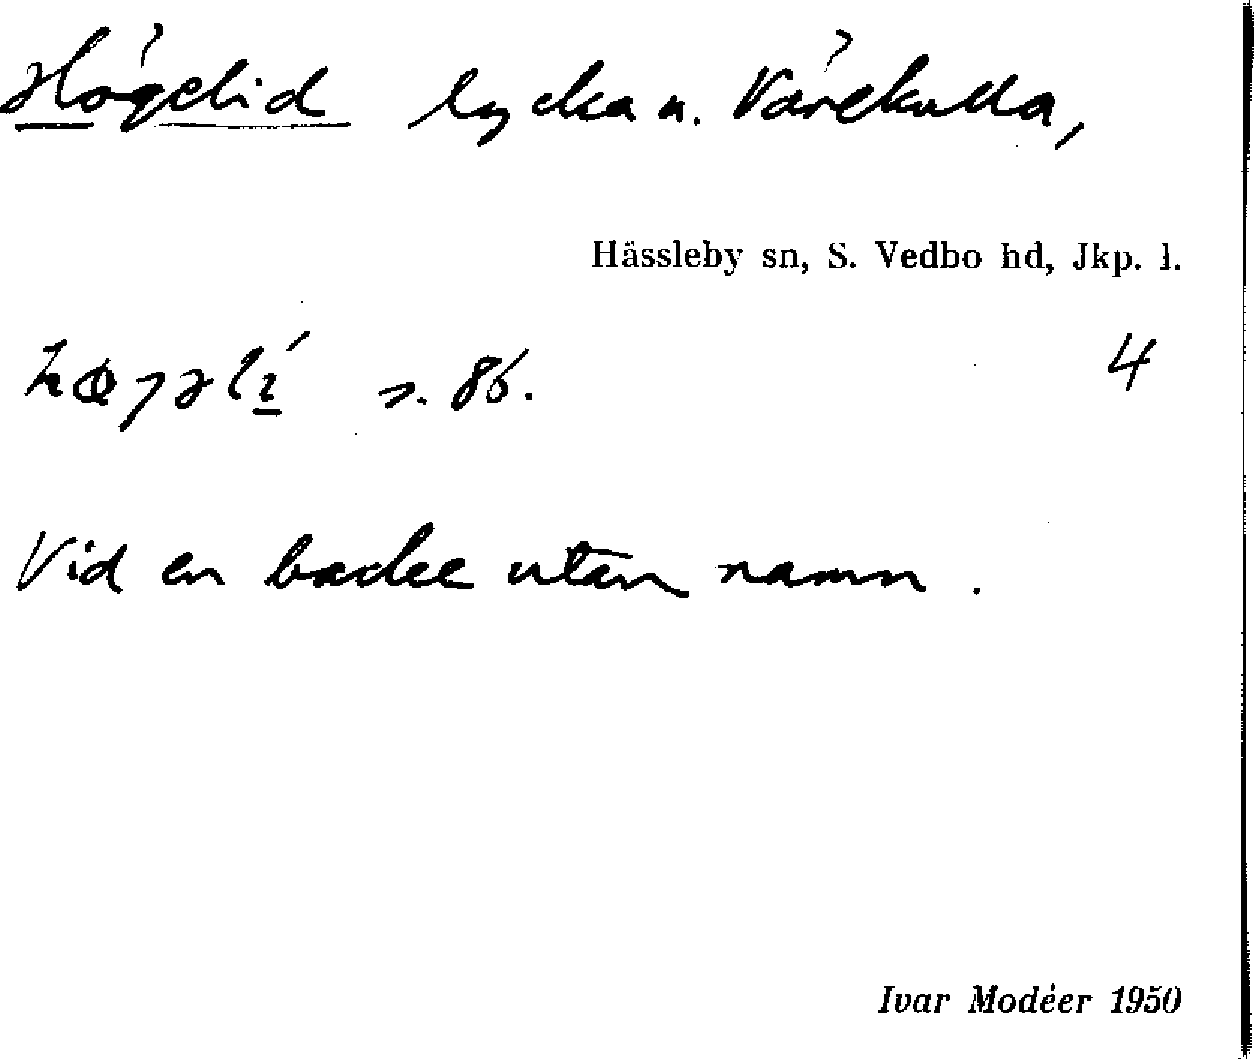 Högelid lycka u. Vårekulla,
Hässleby sn, S. Vedbo hd, Jkp. l.
4
s. 86.
Vid en backe utan namn.
Ivar Modéer 1950